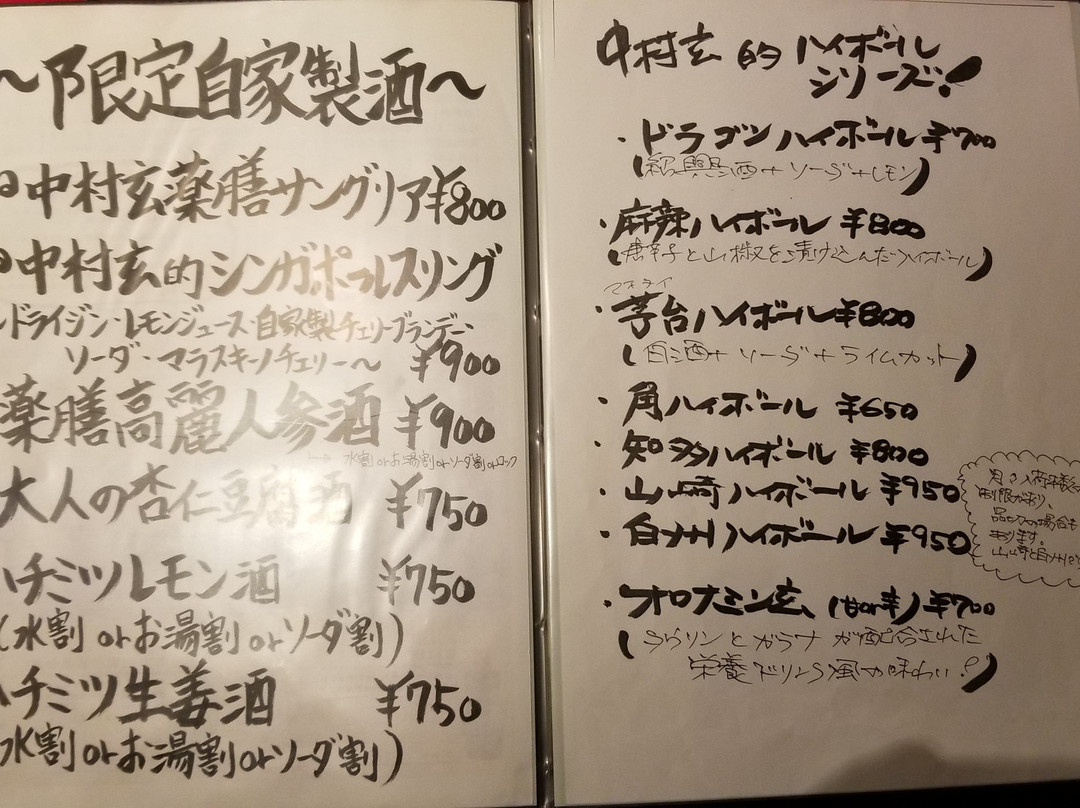 〜限定自家製酒〜
中村玄薬膳サングリア¥800
中村玄的シンガポールスリング
ドライジン・レモンジュース・自家製チェリーブランデー・
ソーダ・マラスキーノチェリー〜 ¥900
薬膳高麗人参酒 ¥900
水割orお湯割orソーダ割orロック
大人の杏仁豆腐酒 ¥750
ハチミツレモン酒 ¥750
(水割orお湯割orソーダ割)
ハチミツ生姜酒 ¥750
(水割orお湯割orソーダ割)
中村玄的ハイボール
シリーズ!
・ドラゴンハイボール ¥700
(紹興酒+ソーダ+レモン)
・麻辣ハイボール ¥800
(唐辛子と山椒を漬け込んだハイボール)
マオタイ
・茅台ハイボール¥800
(白酒+ソーダ+ライムカット)
・角ハイボール ¥650
・知多ハイボール ¥800
・山崎ハイボール ¥950
・白州ハイボール ¥950
月の入荷本数
制限があり、
品切の場合も
あります。
山崎と白州
・オロナミン玄 (甘or辛)¥700
(とガラナが配合された
栄養ドリンク風の味わい!)